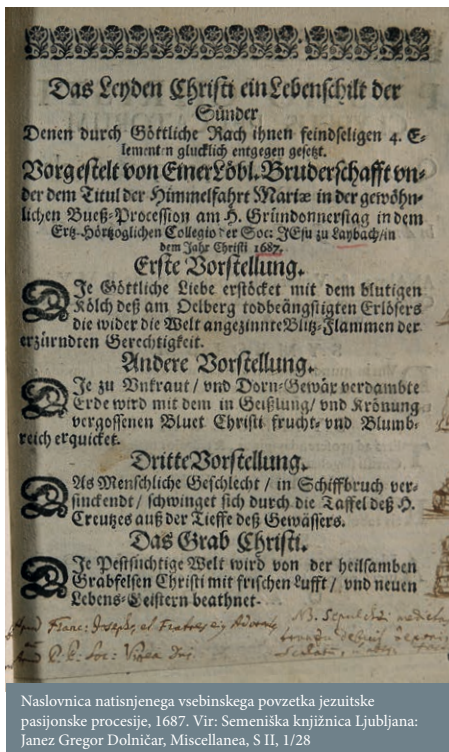 Das Leyden Christi ein Lebenschilt der
Sünder
Denen durch Göttliche Rach ihnen feindseligen 4. E-
lementen glucklich entgegen gesetzt.
Vorgestelt von Einer Löbl. Bruderschafft vn-
der dem Titul der Himmelfahrt Mariæ in der gewöhn-
lichen Bueß-Procession am H. Gründonnerstag in dem
Ertz-Hörtzoglichen Collegio der Soc: JEsu zu Laybach/in
dem Jahr Christi 1687.
Erste Vorstellung.
DIe Göttliche Liebe erstöcket mit dem blutigen
Kölch deß am Oelberg todbeängstigten Erlösers
die wider die Welt angezinnte Blitz-Flammen der
erzürndten Gerechtigkeit.
Andere Vorstellung.
DIe zu Vnkraut/ vnd Dorn-Gewäx verdambte
Erde wird mit dem in Geißlung/ vnd Krönung
vergossenen Bluet Christi frucht- vnd Blumb-
reich erquicket.
Dritte Vorstellung.
DAs Menschliche Geschlecht / in Schiffbruch ver-
sinckendt / schwinget sich durch die Taffel deß H.
Creutzes auß der Tieffe deß Gewässers.
Das Grab Christi.
DIe Pestsüchtige Welt wird von der heilsamben
Grabfelsen Christi mit frischen Lufft / vnd neuen
Lebens-Geistern beathnet.
Franc: Joseph, et Fratres
P. P. Soc:
NB. Sepulchri
Naslovnica natisnjenega vsebinskega povzetka jezuitske
pasijonske procesije, 1687. Vir: Semeniška knjižnica Ljubljana:
Janez Gregor Dolničar, Miscellanea, S II, 1/28